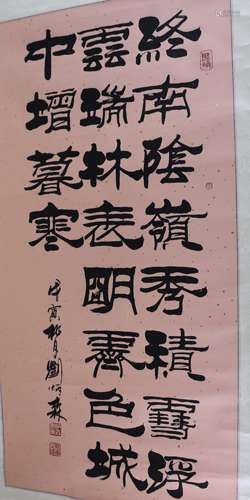 終南陰嶺秀積雪浮
雲端林表明霽色城
中增暮寒
寅秋月劉炳森